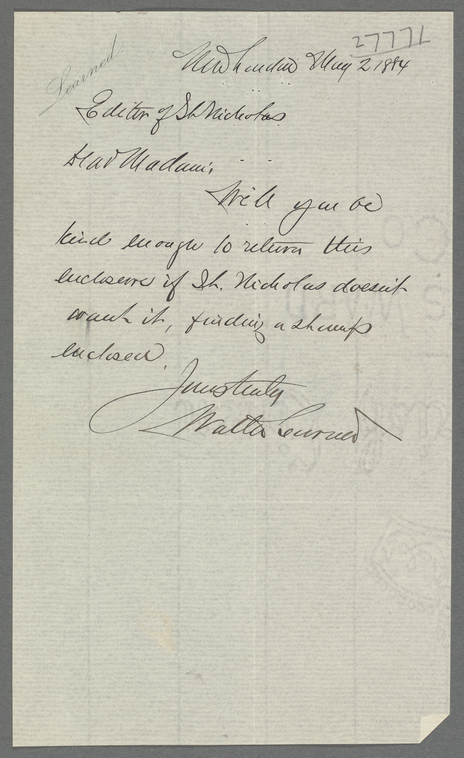 27771
Learned.
New London May 2 1884
Editor of St. Nicholas
Dear Madam:
Will you be
kind enough to return this
enclosure if St. Nicholas doesn't
want it, finding a stamp
enclosed
Yours truly
Walter Learned